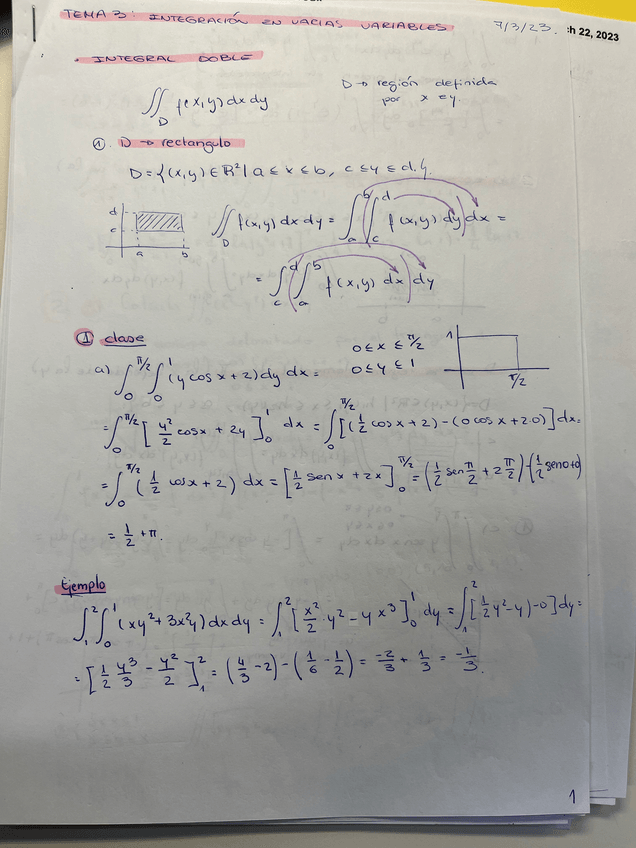 TEMA 3: INTEGRACIÓN EN VARIAS VARIABLES 7/3/23. ch 22, 2023
• INTEGRAL DOBLE
∬_D f(x,y) dx dy D → región definida
por x e y.
①. D → rectangulo
D = {(x,y) ∈ ℝ² | a ≤ x ≤ b, c ≤ y ≤ d}.
d c a b ∬_D f(x,y) dx dy = ∫_a^b (∫_c^d f(x,y) dy) dx =
= ∫_c^d (∫_a^b f(x,y) dx) dy
① clase
a) ∫_0^{π/2} ∫_0^1 (y cos x + 2) dy dx = 0 ≤ x ≤ π/2 0 ≤ y ≤ 1 1 π/2
= ∫_0^{π/2} [y²/2 cos x + 2y]_0^1 dx = ∫_0^{π/2} [(1/2 cos x + 2) - (0 cos x + 2·0)] dx =
= ∫_0^{π/2} (1/2 cos x + 2) dx = [1/2 sen x + 2x]_0^{π/2} = (1/2 sen π/2 + 2 π/2) - (1/2 sen 0 + 0)
= 1/2 + π.
Ejemplo
∫_1^2 ∫_0^1 (xy² + 3x²y) dx dy = ∫_1^2 [x²/2 · y² - y x³]_0^1 dy = ∫_1^2 [(1/2 y² - y) - 0] dy =
= [1/2 y³/3 - y²/2]_1^2 = (4/3 - 2) - (1/6 - 1/2) = -2/3 + 1/3 = -1/3.
1